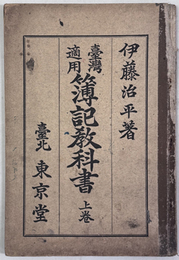 伊藤治平著
臺灣適用
簿記教科書 上卷
臺北 東京堂